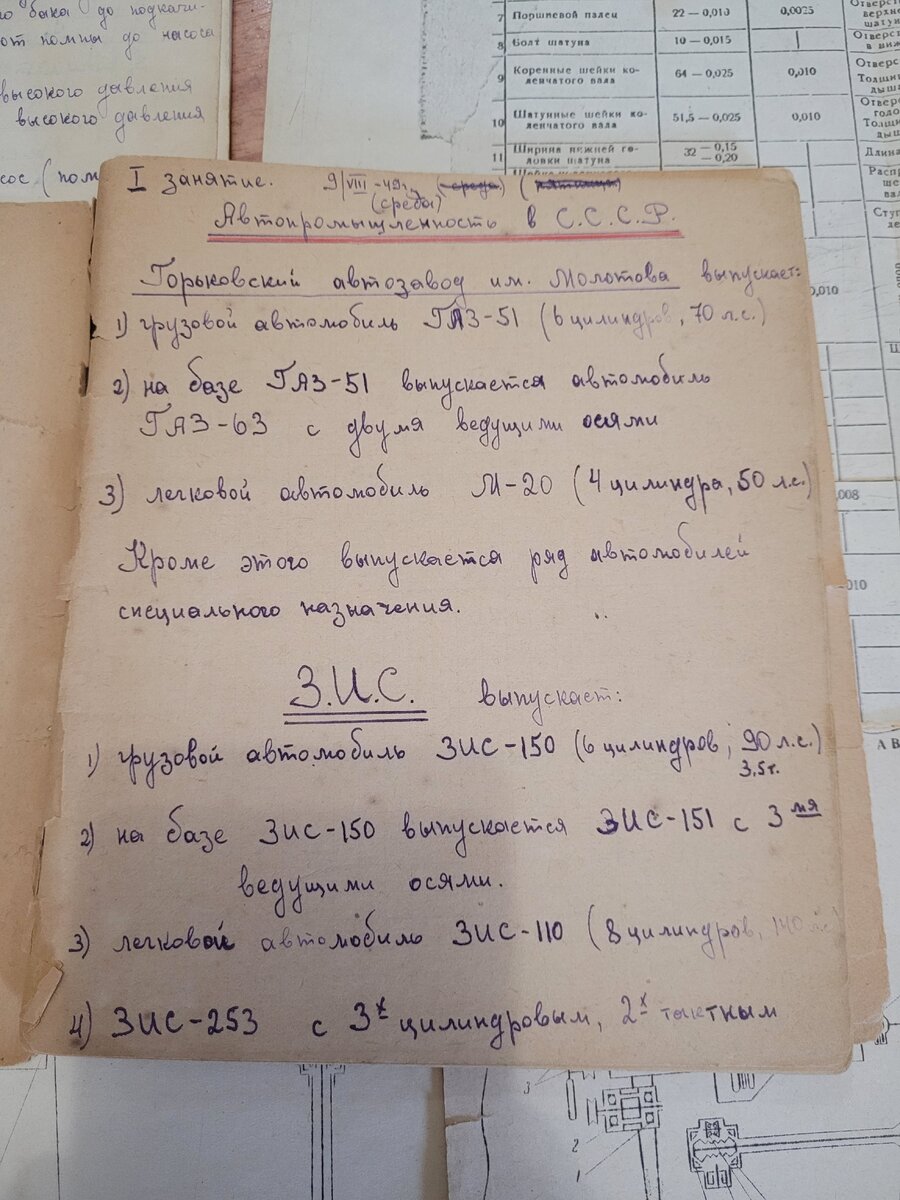 бака до подкачи-
от помпы до насоса
высокого давления
высокого давления
7 Поршневой палец 22 — 0,010 0,0025
8 Болт шатуна 10 — 0,015
9 Коренные шейки ко-
ленчатого вала 64 — 0,025 0,010
10 Шатунные шейки ко-
ленчатого вала 51,5 — 0,025 0,010
11 Ширина нижней го-
ловки шатуна 32 — 0,15
— 0,20
Отверс
верхне
шатун
Отверс
в ниж
Отверс
Толщин
дыша
Отвер
голо
Толщи
дыш
Длина
Распр
ше
ва
Ступ
ле
0,010
.008
010
А В
I занятие. 9/VIII-49г. (среда) (пятница)
(среда)
Автопромышленность в С.С.С.Р.
Горьковский автозавод им. Молотова выпускает:
1) грузовой автомобиль ГАЗ-51 (6 цилиндров, 70 л.с.)
2) на базе ГАЗ-51 выпускается автомобиль
ГАЗ-63 с двумя ведущими осями
3) легковой автомобиль М-20 (4 цилиндра, 50 л.с.)
Кроме этого выпускается ряд автомобилей
специального назначения.
З.И.С. выпускает:
1) грузовой автомобиль ЗИС-150 (6 цилиндров, 90 л.с.)
3,5т.
2) на базе ЗИС-150 выпускается ЗИС-151 с 3мя
ведущими осями.
3) легковой автомобиль ЗИС-110 (8 цилиндров, 140 лс
4) ЗИС-253 с 3х цилиндровым, 2х тактным
3
2
1